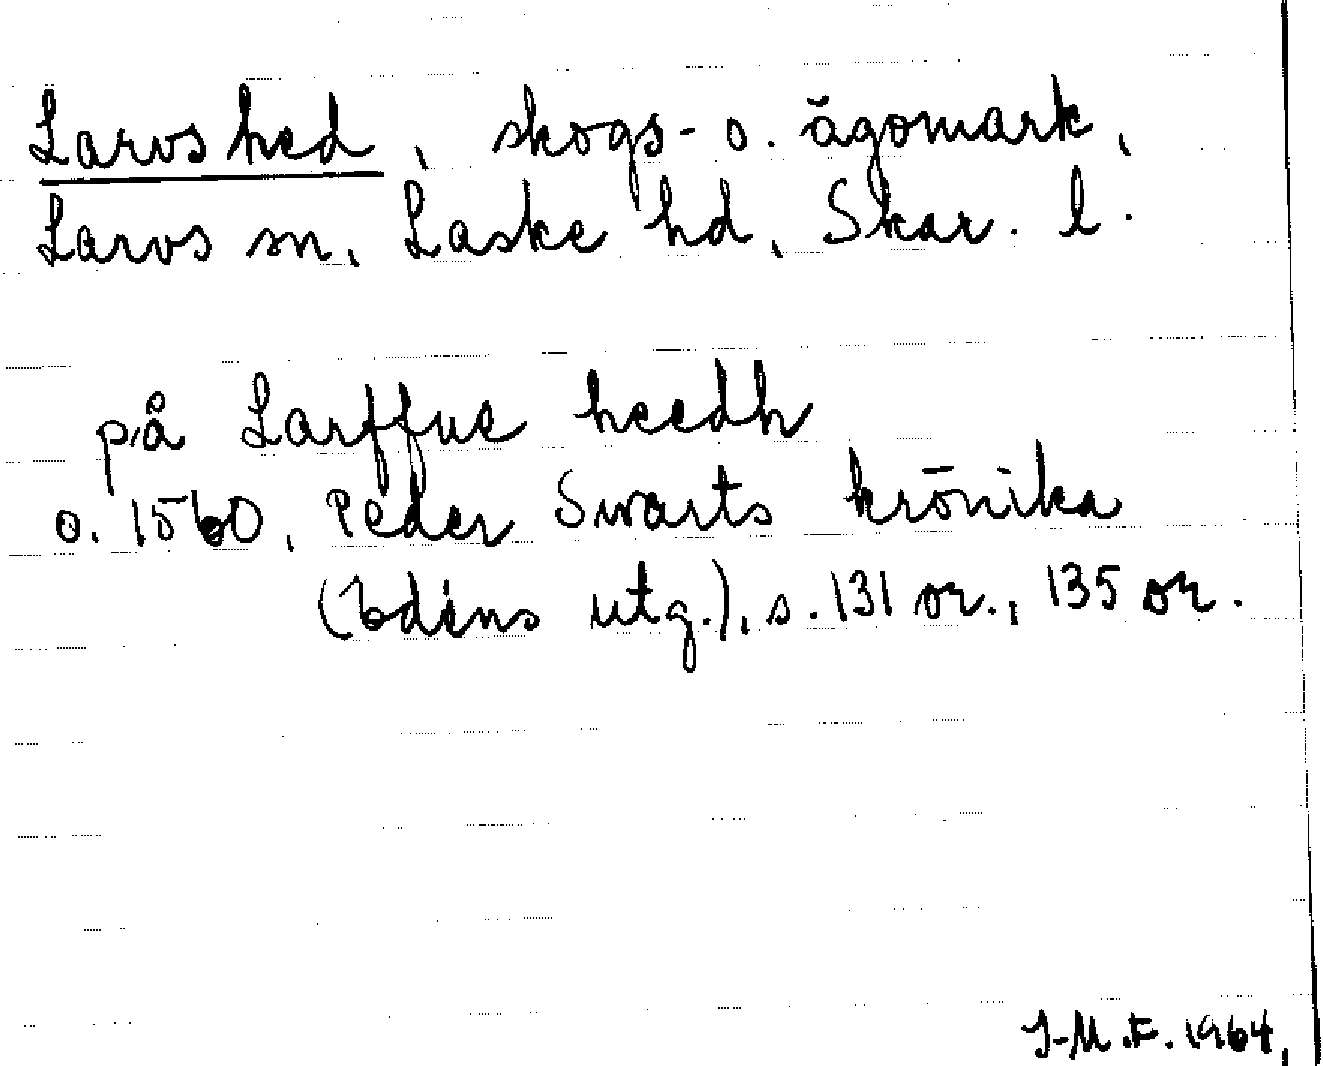 Larvs hed, skogs- o. ägomark,
Larvs sn, Laske hd, Skar. l.
på Larffue heedh
o. 1560, Peder Swarts krönika
(Edéns utg.), s. 131 or., 135 or.
I-M.F. 1964.